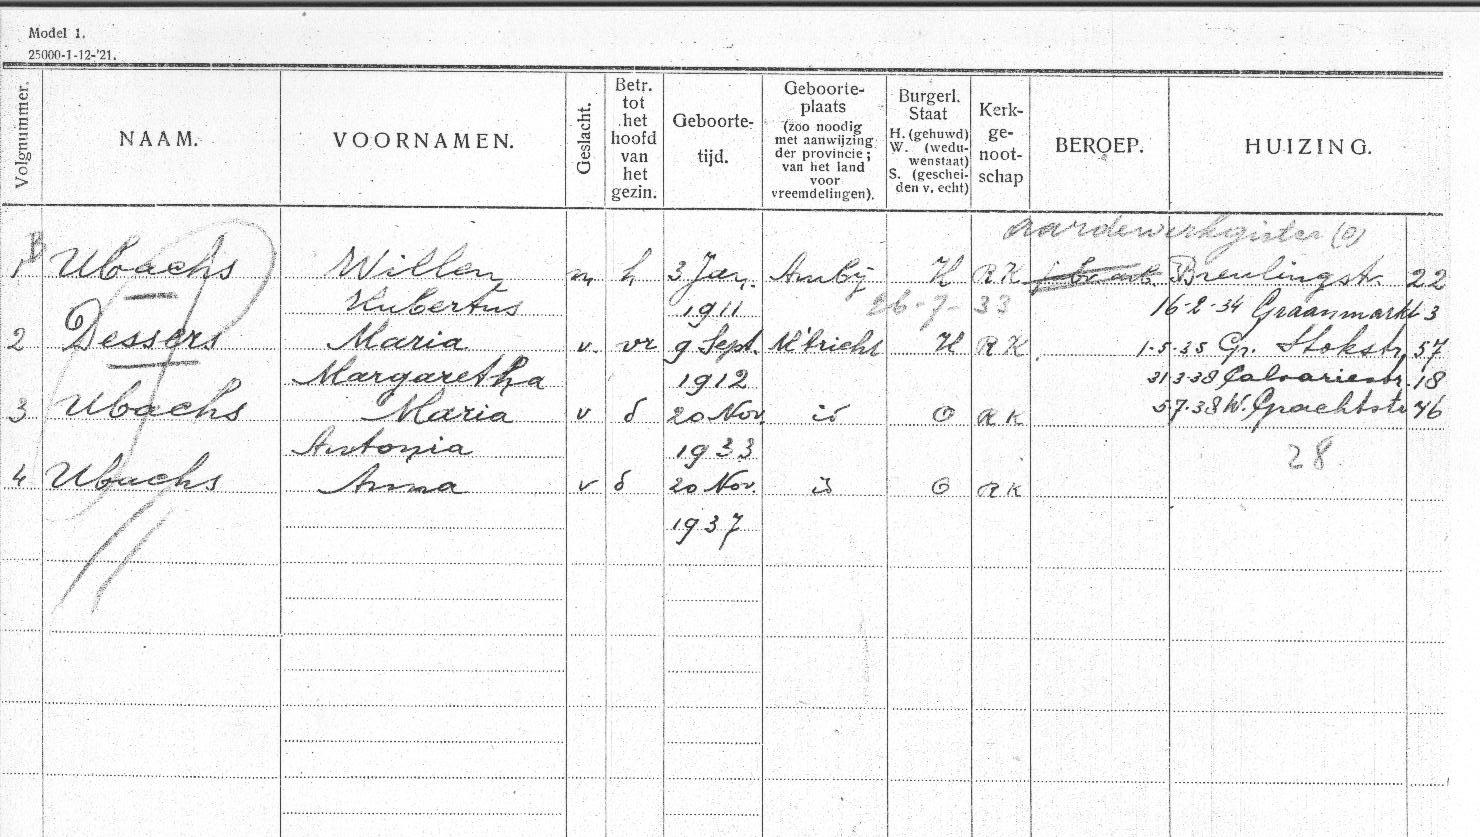 Model 1.
25000-1-12-'21.
Volgnummer.
NAAM.
VOORNAMEN.
Geslacht.
Betr.
tot
het
hoofd
van
het
gezin.
Geboorte-
tijd.
Geboorte-
plaats
(zoo noodig
met aanwijzing
der provincie;
van het land
voor
vreemdelingen).
Burgerl.
Staat
H. (gehuwd)
W. (wedu-
wenstaat)
S. (geschei-
den v. echt)
Kerk-
ge-
noot-
schap
BEROEP.
HUIZING.
aardewerkgieter (e)
1 Ubachs Willem m h 3 Jan. Amby H RK Breulingstr. 22
Hubertus 1911 26-7-33 16-2-34 Graanmarkt 3
2 Dessers Maria v. vr 9 Sept. M'tricht H RK 1-5-35 Gr. Stokstr. 57
Margaretha 1912 31-3-38 Calvariestr. 18
3 Ubachs Maria v d 20 Nov. id O RK 5-7-38 W. Grachtstr 46
Antonia 1933 28
4 Ubachs Anna v d 20 Nov. id O RK
1937